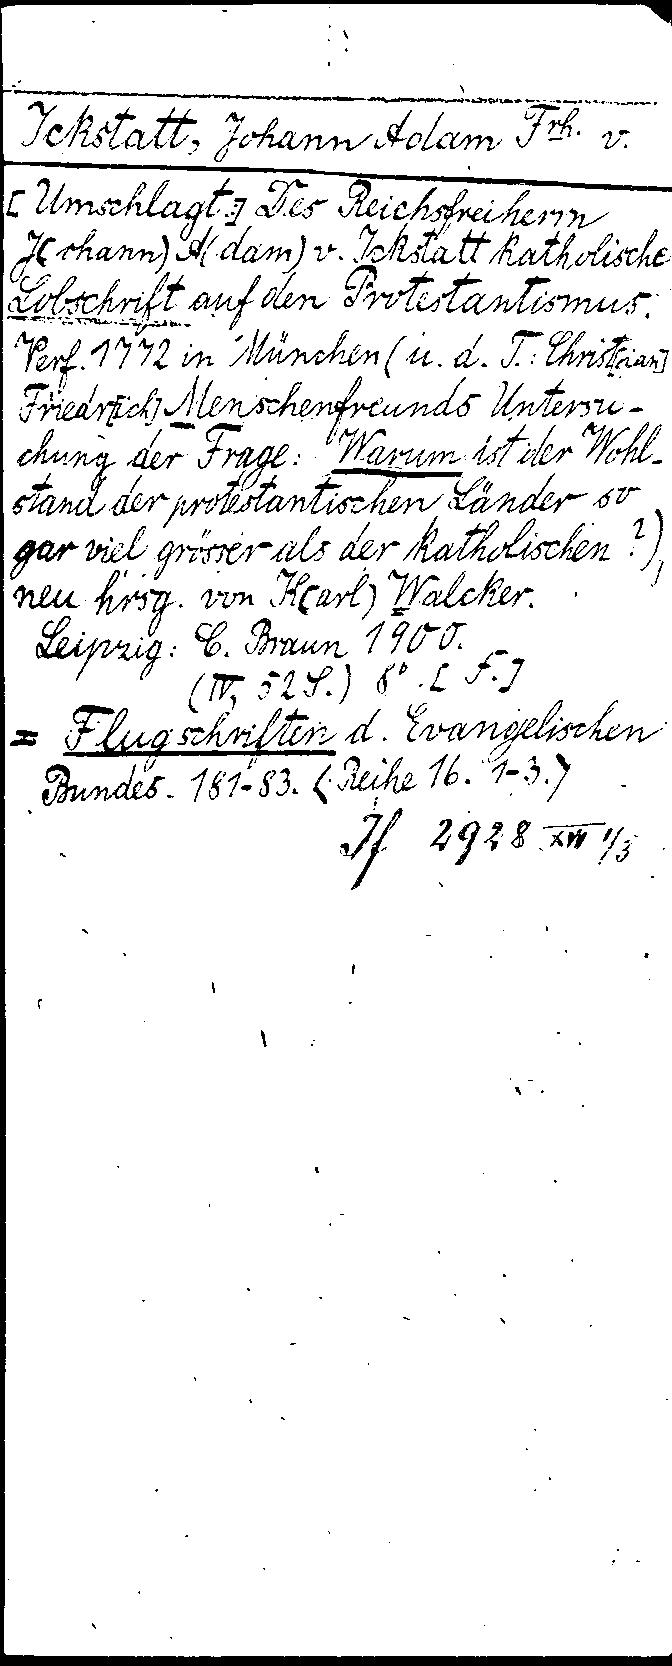 Ickstatt, Johann Adam Frh. v.
[Umschlagt.:] Des Reichsfreiherrn
J(ohann) A(dam) v. Ickstatt katholische
Lobschrift auf den Protestantismus.
Verf. 1772 in München (u. d. T.: Christ[ian]
Friedr[ich] Menschenfreunds Untersu-
chung der Frage: Warum ist der Wohl-
stand der protestantischen Länder so
gar viel grösser als der katholischen?),
neu hrsg. von K(arl) Walcker.
Leipzig: C. Braun 1900.
(IV, 52 S.) 8°. [F.]
= Flugschriften d. Evangelischen
Bundes. 181-83. (Reihe 16. 1-3.)
If 2928 XVI 1/3